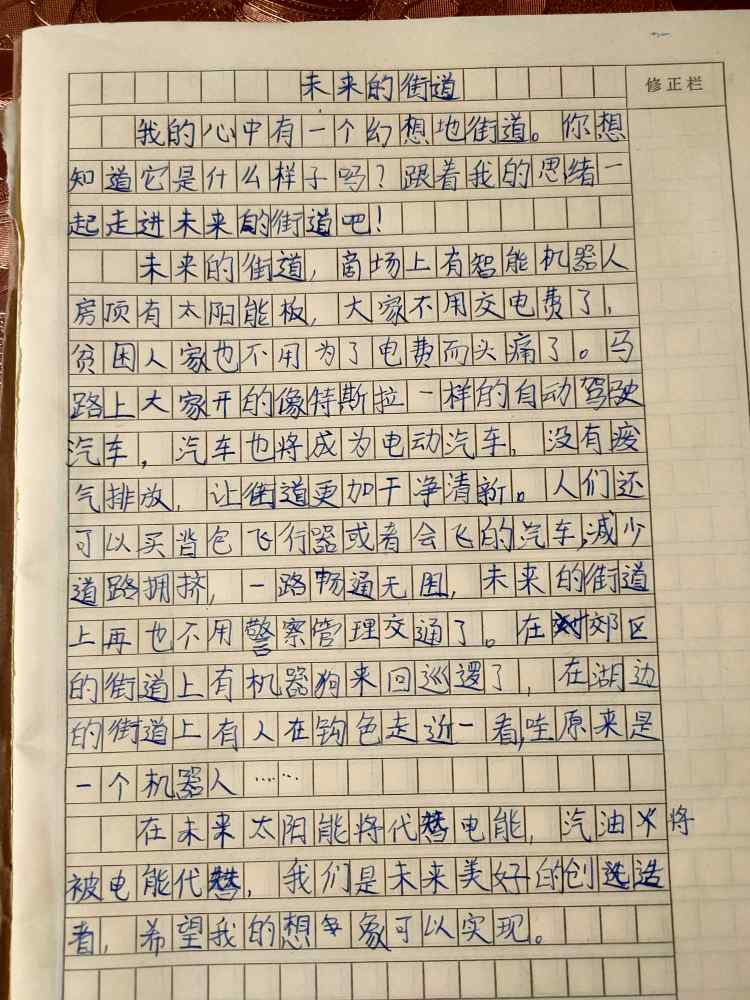 未来的街道
修正栏
我的心中有一个幻想地街道。你想
知道它是什么样子吗?跟着我的思绪一
起走进未来的街道吧!
未来的街道,商场上有智能机器人
房顶有太阳能板,大家不用交电费了,
贫困人家也不用为了电费而头痛了。马
路上大家开的像特斯拉一样的自动驾驶
汽车,汽车也将成为电动汽车,没有废
气排放,让街道更加干净清新。人们还
可以买背包飞行器或者会飞的汽车,减少
道路拥挤,一路畅通无阻,未来的街道
上再也不用警察管理交通了。在郊区
的街道上有机器狗来回巡逻了,在湖边
的街道上有人在钩色走近一看,哇原来是
一个机器人……
在未来太阳能将代替电能,汽油将
被电能代替,我们是未来美好的创造
者,希望我的想象可以实现。